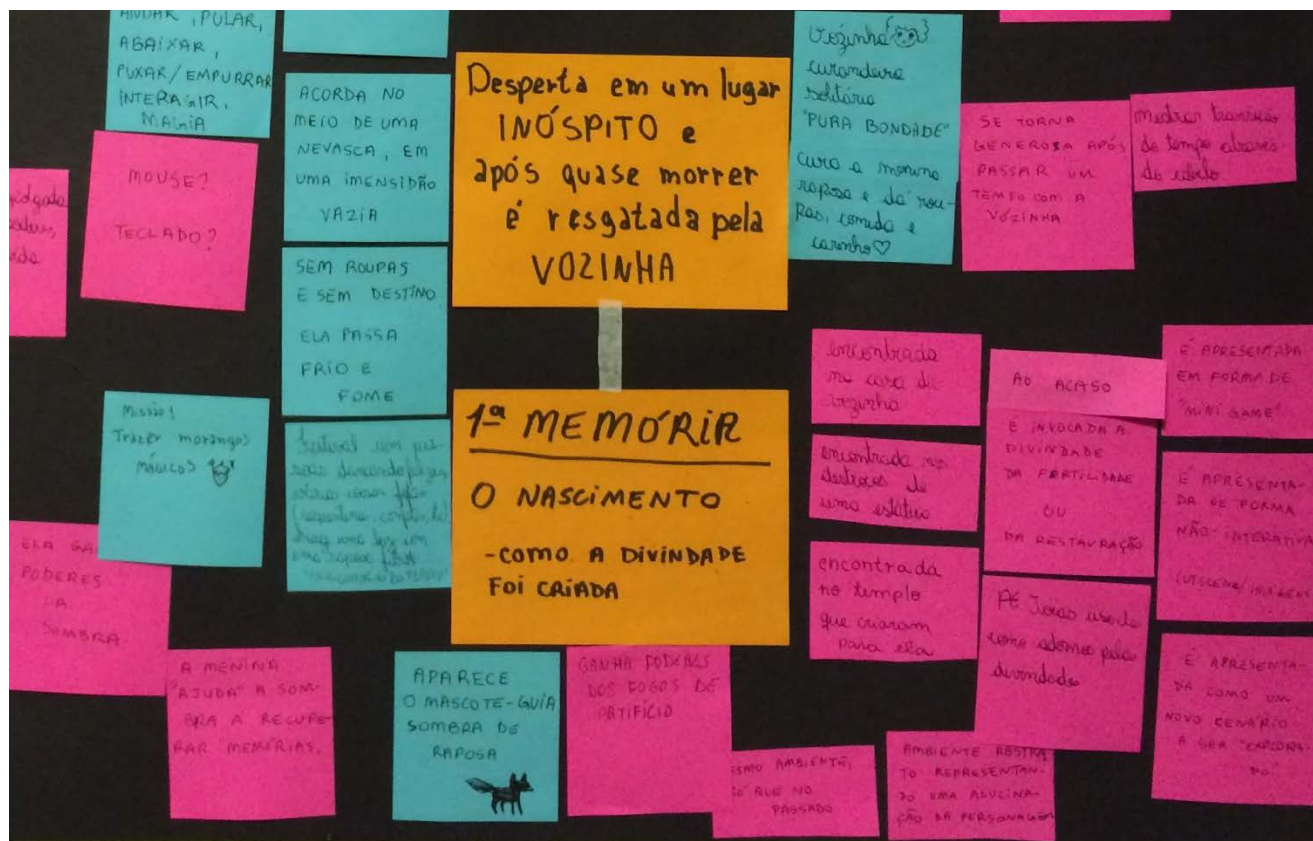 ANDAR, PULAR,
ABAIXAR,
PUXAR/EMPURRAR
INTERAGIR,
MAGIA
MOUSE?
TECLADO?
ACORDA NO
MEIO DE UMA
NEVASCA, EM
UMA IMENSIDÃO
VAZIA
SEM ROUPAS
E SEM DESTINO
ELA PASSA
FRIO E
FOME
Missão!
Trazer morangos
MÁGICOS
festival com pes-
soas
uma raposa
ELA GA
PODERES
DA
SOMBRA
A MENINA
"AJUDA" A SOM-
BRA A RECUPE-
RAR MEMÓRIAS.
Desperta em um lugar
INÓSPITO e
após quase morrer
é resgatada pela
VOZINHA
1ª MEMÓRIA
O NASCIMENTO
-COMO A DIVINDADE
FOI CRIADA
APARECE
O MASCOTE-GUIA
SOMBRA DE
RAPOSA
GANHA PODERES
DOS FOGOS DE
ARTIFÍCIO
Vozinha
curandeira
solitária
"PURA BONDADE"
cura a menina
raposa e dá rou-
pas, comida e
carinho♡
SE TORNA
GENEROSA APÓS
PASSAR UM
TEMPO COM A
VOZINHA
mostrar transição
do tempo através
do cabelo
encontrada
na casa da
vozinha
encontrada nos
destroços de
uma estátua
encontrada
no templo
que criaram
para ela
AO ACASO
E INVOCADA A
DIVINDADE
DA FERTILIDADE
OU
DA RESTAURAÇÃO
Joias usadas
como adornos pelas
divindades
É APRESENTADA
EM FORMA DE
"MINI GAME"
É APRESENTA-
DA DE FORMA
NÃO-INTERATIVA
CUTSCENE/IMAGENS
É APRESENTA-
DA COMO UM
NOVO CENÁRIO
A SER "EXPLORA-
DO"
ESMO AMBIENTE,
SÓ QUE NO
PASSADO
AMBIENTE ABSTRA-
TO REPRESENTAN-
DO UMA ALUCINA-
ÇÃO DA PERSONAGEM